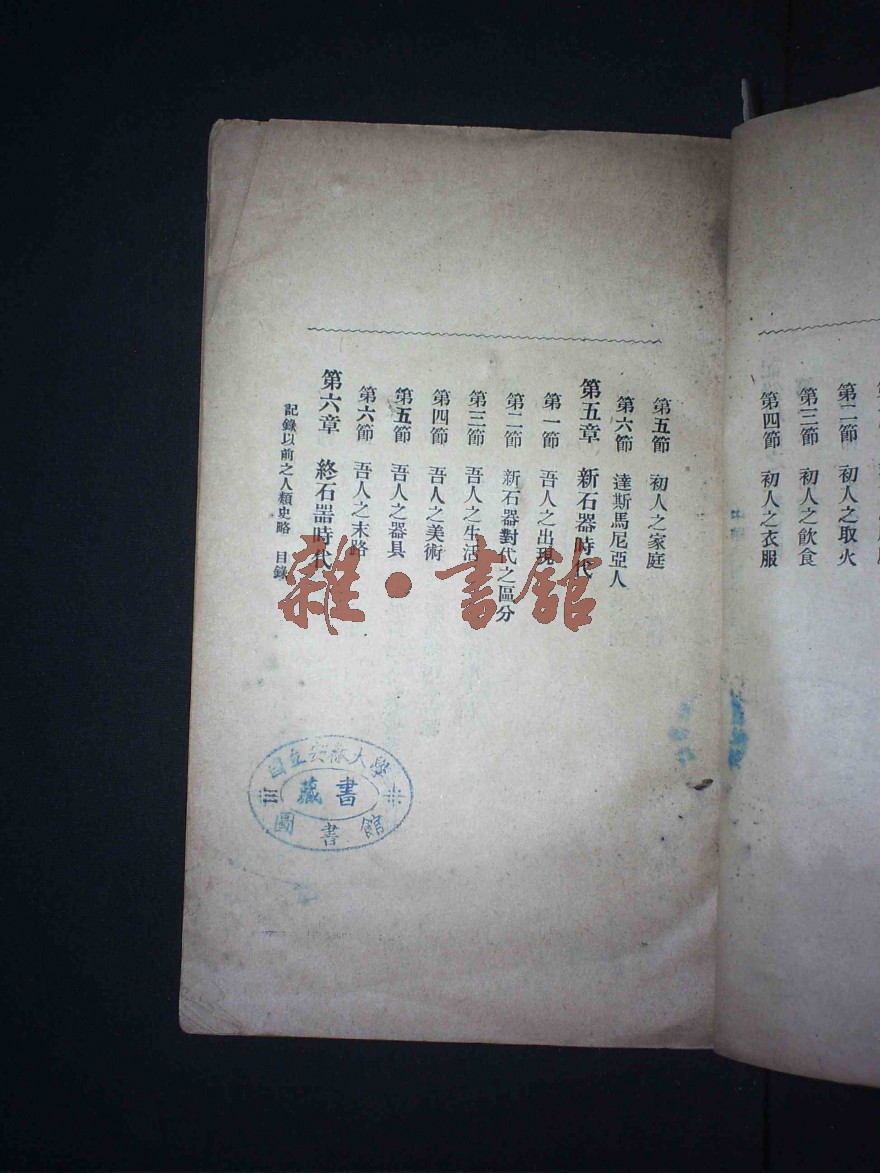 第二節　初人之取火
第三節　初人之飲食
第四節　初人之衣服
第五節　初人之家庭
第六節　達斯馬尼亞人
第五章　新石器時代
第一節　吾人之出現
第二節　新石器對代之區分
第三節　吾人之生活
第四節　吾人之美術
第五節　吾人之器具
第六節　吾人之末路
第六章　終石器時代
記錄以前之人類史略　目錄
雜·書館
國立安徽大學
藏書
圖書館